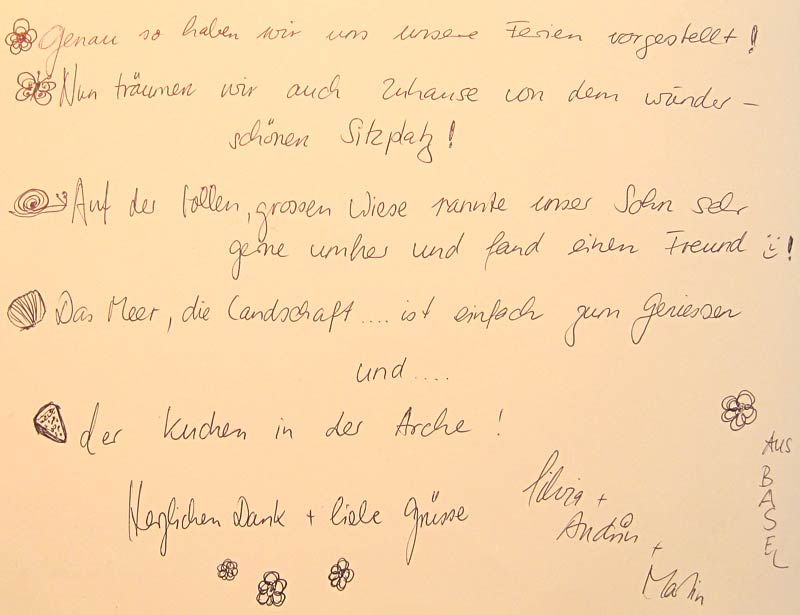 Genau so haben wir uns unsere Ferien vorgestellt!
Nun träumen wir auch Zuhause von dem wunder-
schönen Sitzplatz!
Auf der tollen, grossen Wiese rannte unser Sohn sehr
gerne umher und fand einen Freund !
Das Meer, die Landschaft.... ist einfach zum Geniessen
und....
der Kuchen in der Arche!
Herzlichen Dank + liebe Grüsse
Silvia +
+
Martin
Aus
BASEL